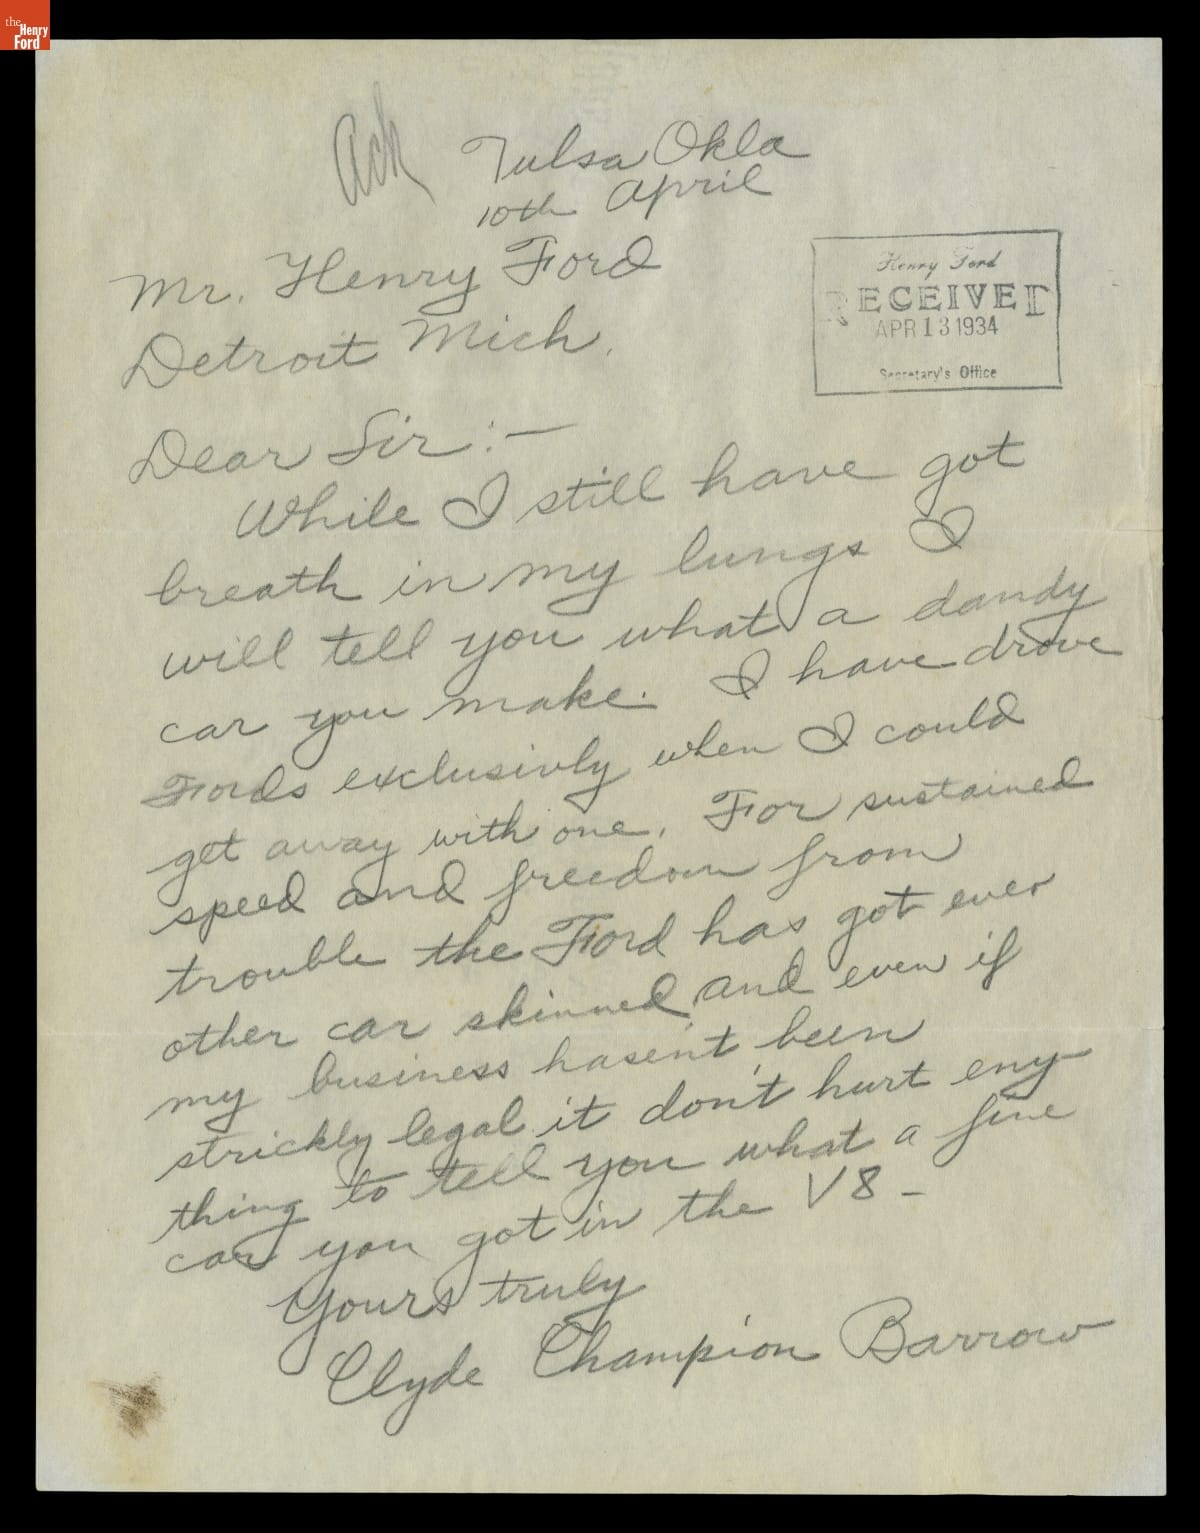 the
Henry
Ford
Ack
Tulsa Okla
10th April
Mr. Henry Ford
Detroit Mich.
Henry Ford
RECEIVED
APR 13 1934
Secretary's Office
Dear Sir:—
While I still have got
breath in my lungs I
will tell you what a dandy
car you make. I have drove
Fords exclusivly when I could
get away with one. For sustained
speed and freedom from
trouble the Ford has got ever
other car skinned, and even if
my business hasen't been
strickly legal it don't hurt eny-
thing to tell you what a fine
car you got in the V8 –
Yours truly
Clyde Champion Barrow